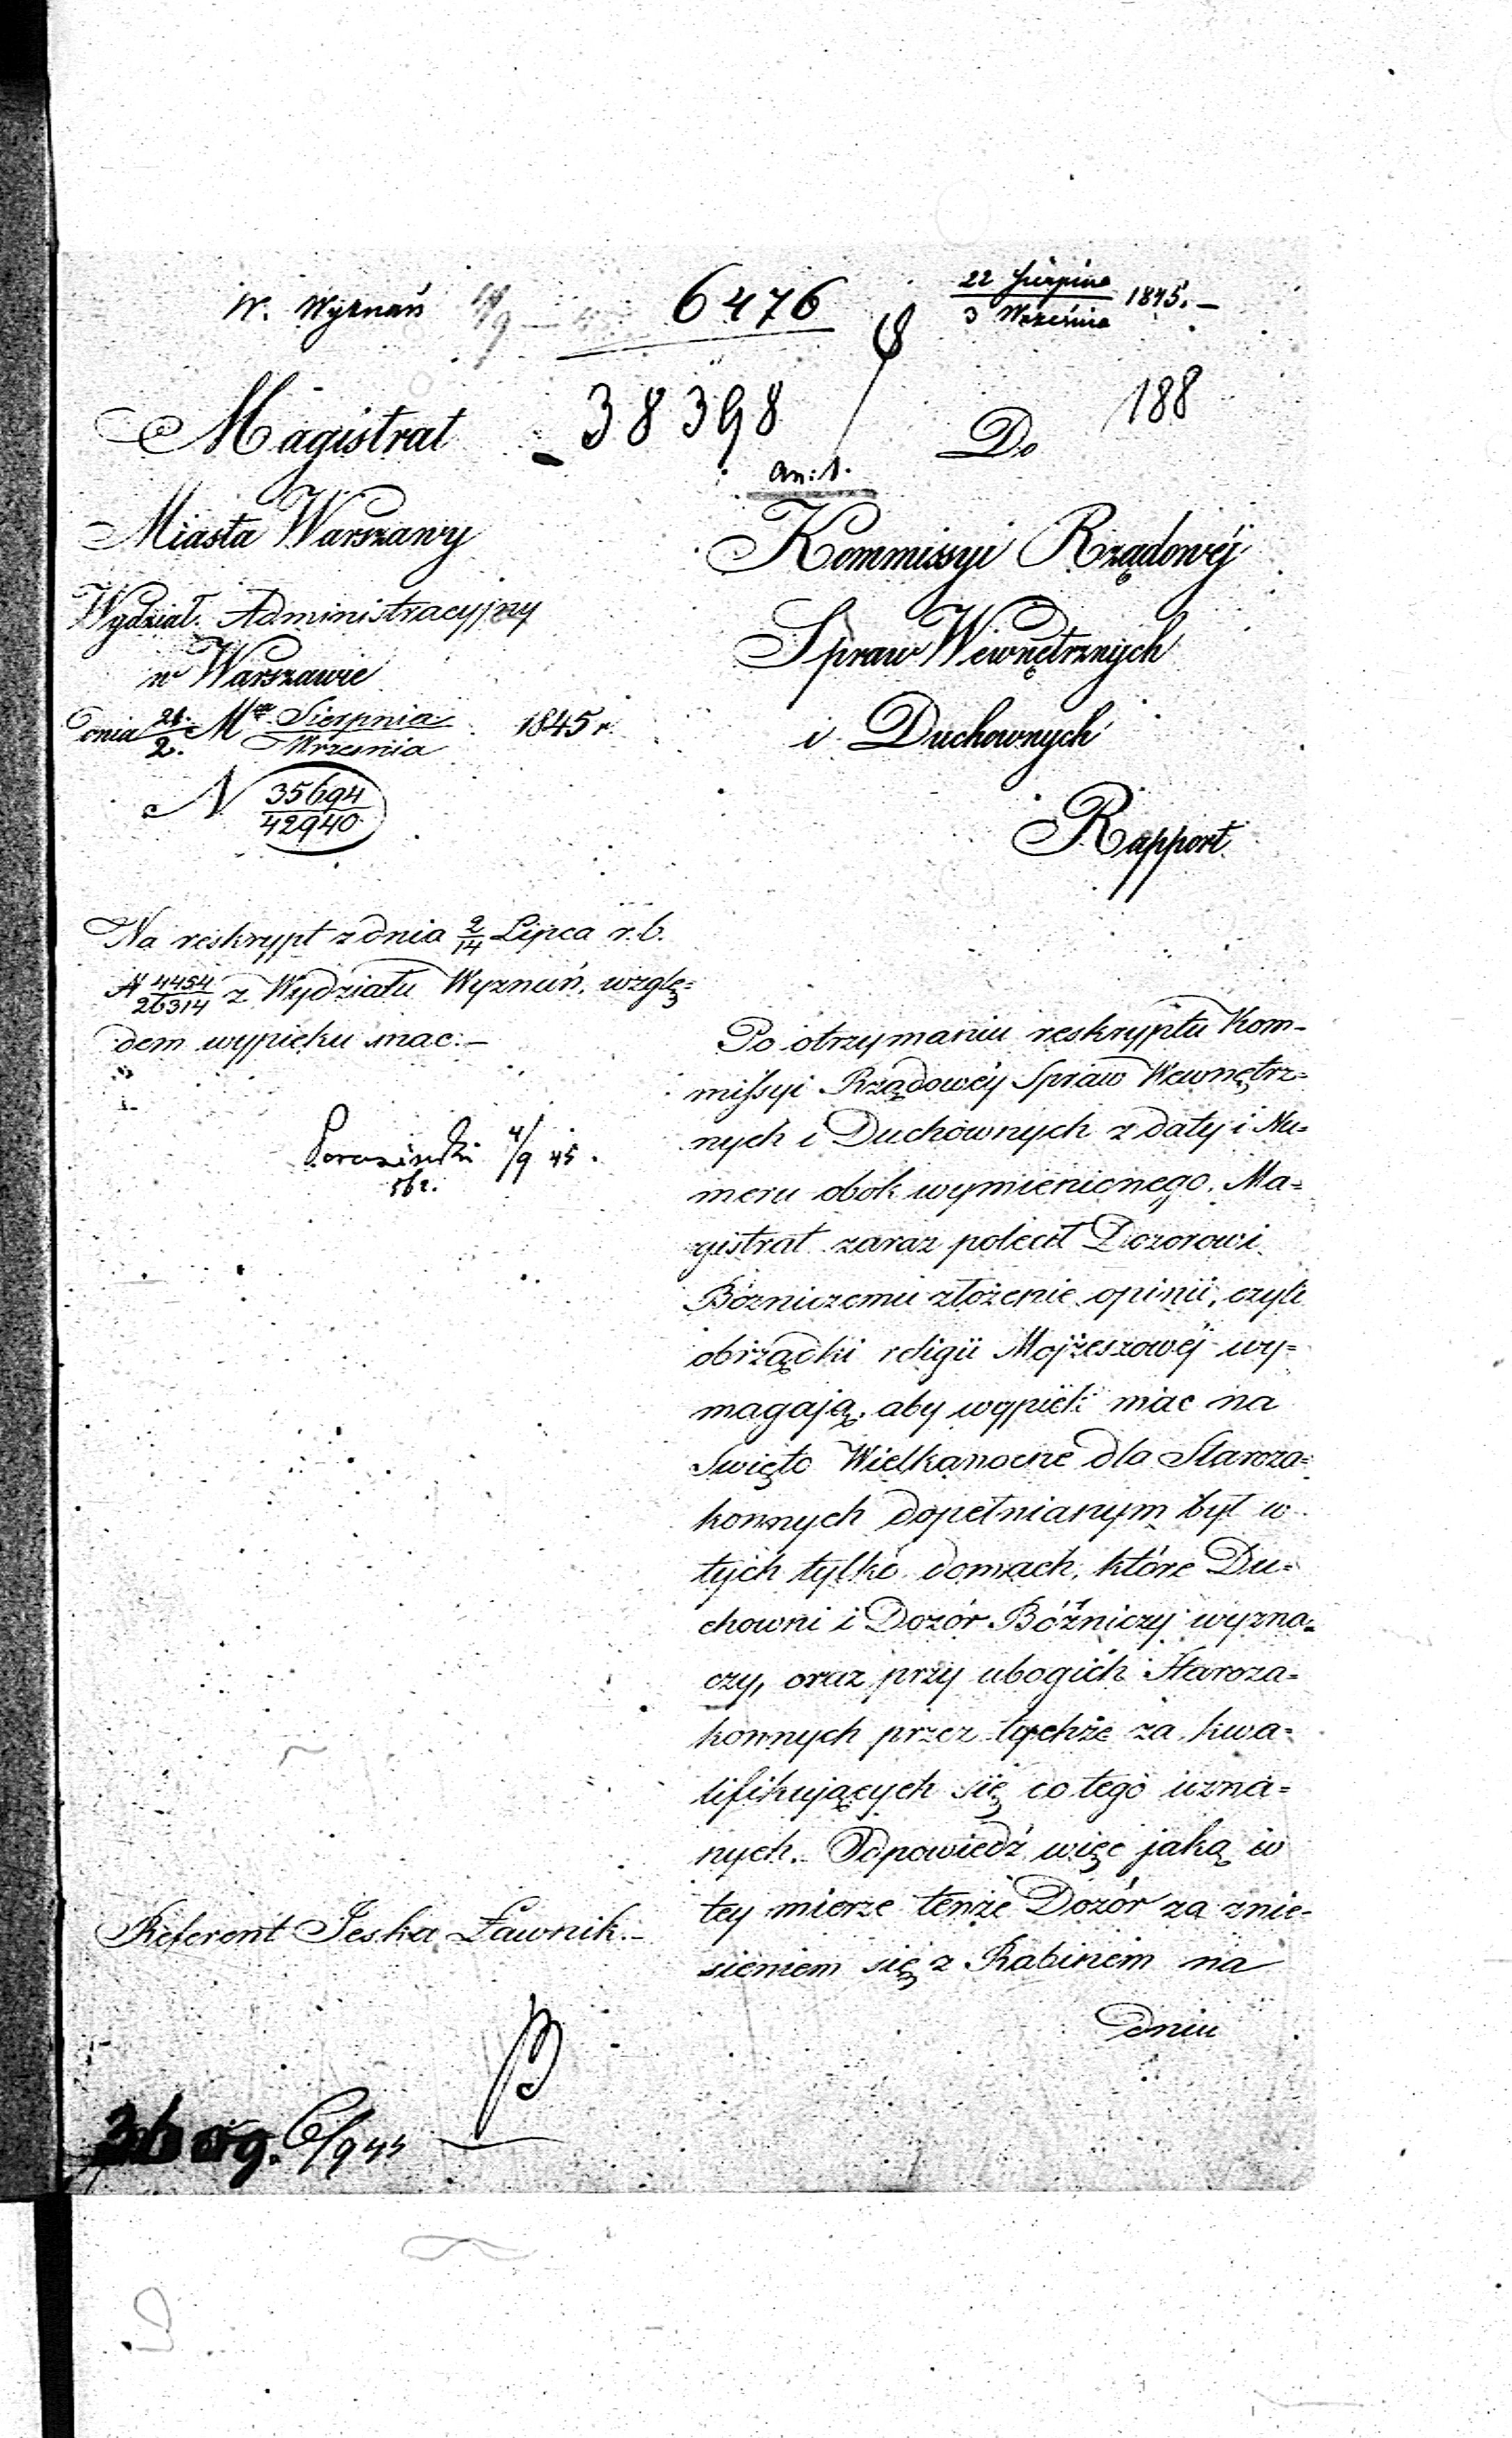 W. Wyznań
6476
22 Sierpnia
3 Września 1845. –
38398
188
an: 1.
Magistrat
Miasta Warszawy
Wydział Administracyjny
w Warszawie
dnia 21./2. Mca Sierpnia/Września 1845 r.
N 35694/42940
Do
Kommissyi Rządowéj
Spraw Wewnętrznych
i Duchownych
Rapport
Na reskrypt z dnia 2/14 Lipca r. b.
N 4454/26314 z Wydziału Wyznań, wzglę=
dem wypieku mac. –
4/9 45.
Po otrzymaniu reskryptu Kom-
missyi Rządowéy Spraw Wewnętrz=
nych i Duchownych z daty i Nu=
meru obok wymienionego, Ma=
gistrat zaraz polecił Dozorowi
Bózniczemu złożenie opinii, czyli
obrządki religii Mojżeszowéj wy=
magają, aby wypiek mac na
Swięto Wielkanocne dla Staroza=
konnych dopełnianym był w
tych tylko domach, które Du=
chowni i Dozór Bóżniczy wyzna=
czy, oraz przy ubogich Staroza=
konnych przez tychże za kwa=
lifikujących się do tego uzna=
nych. Odpowiedź więc jaką w
tey mierze tenże Dozór za znie-
sieniem się z Rabinem na
dniu
Referent Jeska Ławnik. –
6/9 45